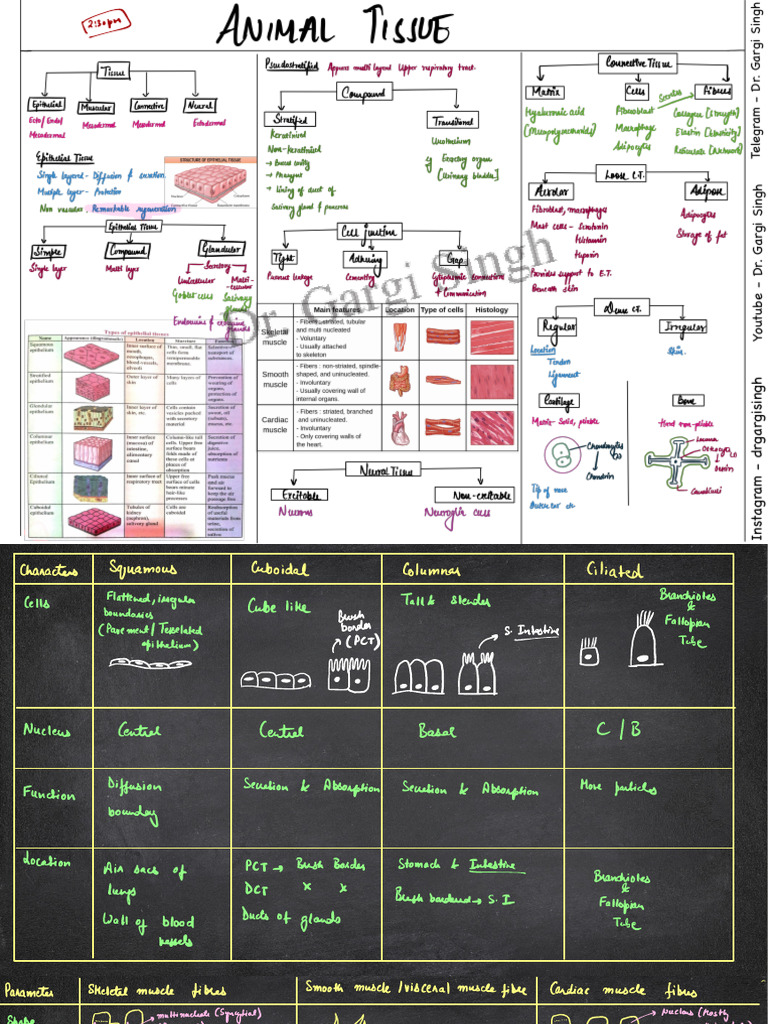 2:30pm
ANIMAL TISSUE
Tissue
Epithelial
Muscular
Connective
Neural
Ecto/Endo/
Mesodermal
Mesodermal
Mesodermal
Ectodermal
Epithelial Tissue
Single layered - Diffusion & secretion.
Multiple layer - Protection
Non vascular, Remarkable regeneration
STRUCTURE OF EPITHELIAL TISSUE
Epithelial Tissue
Simple
Compound
Glandular
Single layer
Multi layer
Secretory
Unicellular
Multi-
cellular
Goblet cells
Salivary
glands
Types of epithelial tissues
Name
Appearance (diagrammatic)
Location
Structure
Squamous
epithelium
Inner surface of
mouth,
oesophagus,
blood vessels,
alveoli
Thin, small, flat
cells form
semipermeable
membrane.
Stratified
epithelium
Outer layer of
skin
Many layers of
cells
Prevention of
wearing of
organs,
protection of
organs.
Glandular
epithelium
Inner layer of
skin, etc.
Cells contain
vesicles packed
with secretory
material
Secretion of
sweat, oil
Columnar
epithelium
Inner surface
(mucosa) of
intestine,
alimentary
canal
Column-like tall
cells. Upper free
surface has
folds made of
these cells at
places of
absorption
Secretion of
digestive
juice,
absorption of
nutrients
Ciliated
Epithelium
Inner surface of
respiratory tract
Upper free
surface of cells
bears minute
hair-like
processes
Push mucus
and air
forward to
keep the air
passage free.
Cuboidal
epithelium
Tubules of
kidney
(nephron),
salivary gland
Cells are
cuboidal
Reabsorption
of useful
materials from
urine,
secretion of
saliva
Pseudostratified
Appears multi layered Upper respiratory tract.
Compound
Stratified
Transitional
Keratinised
Non-Keratinised
→ Buccal cavity
→ Pharynx
→ Lining of duct of
Salivary gland & pancreas
Urothelium
eg Excretory organs
[Urinary bladder]
Cell junction
Tight
Adhering
Gap
Prevent leakage
Cementing
Cytoplasmic connection
+ Communication
Main features
Location
Type of cells
Histology
Skeletal
muscle
- Fibers : striated, tubular
and multi nucleated
- Voluntary
- Usually attached
to skeleton
Smooth
muscle
- Fibers : non-striated, spindle-
shaped, and uninucleated.
- Involuntary
- Usually covering wall of
internal organs.
Cardiac
muscle
- Fibers : striated, branched
and uninucleated.
- Involuntary
- Only covering walls of
the heart.
Neural Tissue
Excitable
Non-excitable
Neurons
Neuroglia cells
Connective Tissue
Matrix
Cells
Fibres
Secretes
Hyaluronic acid
(Mucopolysaccharides)
Fibroblast
Macrophage
Adipocytes
Collagen [Strength]
Elastin [Elasticity]
Reticulate [Network]
Loose C.T.
Areolar
Adipose
Fibroblast, macrophages
Mast cells - Serotonin
Histamin
Heparin
Provides support to E.T.
Beneath skin
Adipocytes
Storage of fat
Dense C.T.
Regular
Irregular
Location
Tendon
Ligament
Skin.
Cartilage
Bone
Matrix - Solid, pliable
Hard non-pliable
Chondrocytes
Chondrin
Tip of nose
Lacuna
Osteocytes
Ossein
Canaliculi
Dr. Gargi Singh
Instagram - drgargisingh Youtube - Dr. Gargi Singh Telegram - Dr. Gargi Singh
Characters
Squamous
Cuboidal
Columnar
Ciliated
Cells
Flattened, irregular
boundaries
(Pavement/ Tesselated
epithelium)
Cube like
Brush
border
(PCT)
Tall & slender
S. Intestine
Bronchioles
&
Fallopian
Tube
Nucleus
Central
Central
Basal
C / B
Function
Diffusion
boundary
Secretion & Absorption
Secretion & Absorption
Move particles
Location
Air sacs of
lungs
Wall of blood
vessels
PCT → Brush Border
DCT x x
Ducts of glands
Stomach & Intestine
Brush bordered → S.I
Bronchioles
&
Fallopian
Tube
Parameter
Skeletal muscle fibres
Smooth muscle /visceral muscle fibre
Cardiac muscle fibres
Shape
multinucleate (Syncytial)